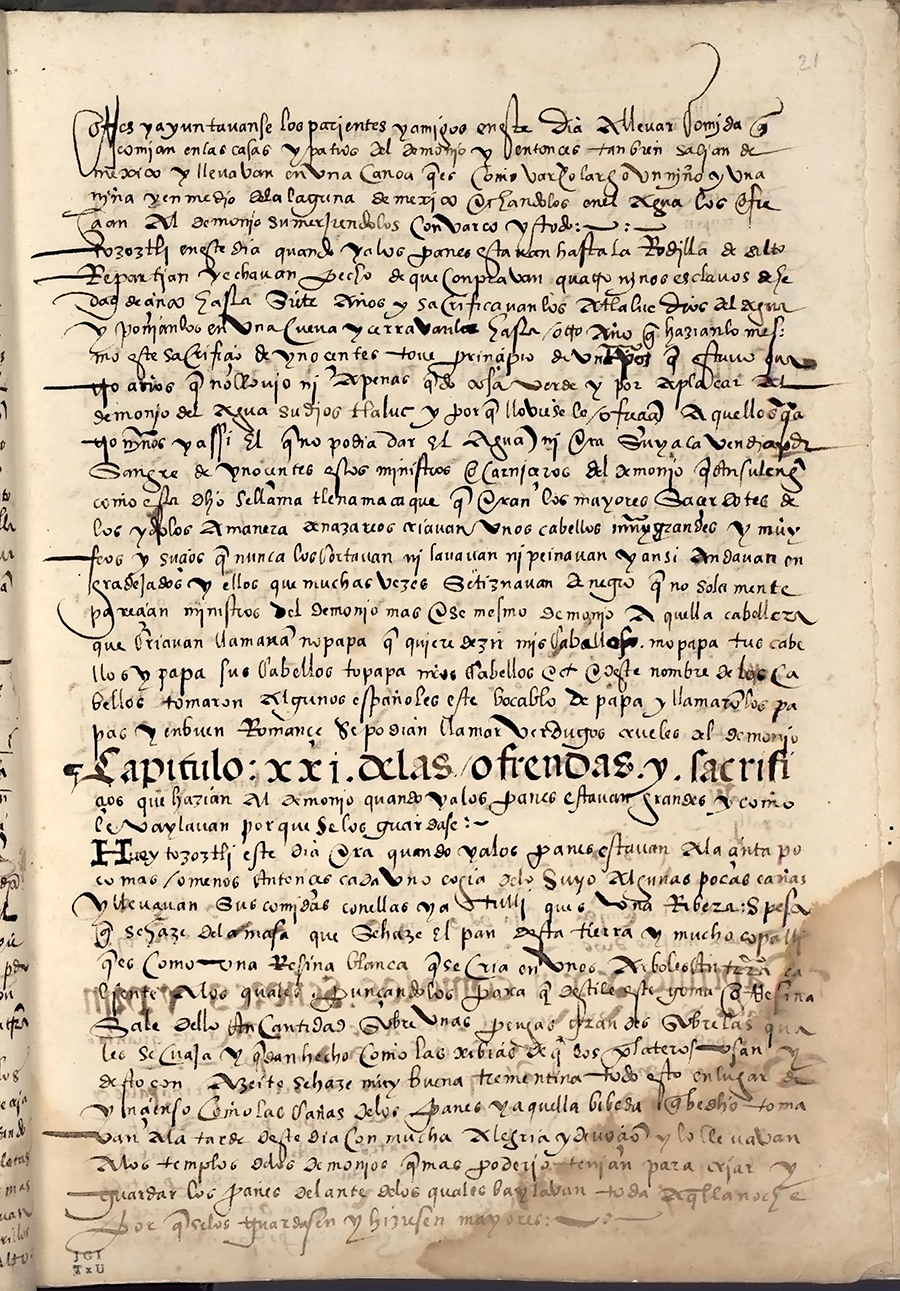 21
otles y ayuntavanse los parientes y amigos en este dia A llevar comida q̃
comian en las casas y patios del demonio y entonces tanbien salian de
mexico y llevavan en una Canoa q̃ es como varco largo un niño y una
niña y en medio dela laguna de mexico echandolos en el Agua los ofre
cian Al demonio sumerjendolos con varco y todo:
Tozoztli en este dia quando ya los panes estavan hasta la Rodilla de alto
Repartian y echavan pecho de que conpravan quatro niños esclavos de he
dad de cinco hasta siete Años y sacrificavanlos Atlaluc dios del Agua
y ponianlos en una Cueva y cerravanla hasta otro Año q̃ hazian lo mes:
mo este sacrificio de ynocentes tove principio de un tpo q̃ estuvo qua
tro años q̃ no llovio ni Apenas q̃do cosa verde y por aplacar Al
demonio del Agua su dios tlaluc y por q̃ lloviese le ofrecian A quellos qua
tro niños y assi El q̃ no podia dar El Agua ni era suya la vendia por
Sangre de ynocentes estos ministros carniceros del demonio q̃ en su lengua
como esta dho se llama tlenamacaque q̃ eran los mayores Sacerdotes de
los ydolos A manera de nazareos criavan unos cabellos muy grandes y muy
feos y suzios q̃ nunca los cortavan ni lavavan ni peinavan y ansi Andavan en
gradejados y ellos que muchas vezes Se tiznavan de negro q̃ no sola mente
parecian ministros del demonio mas ese mesmo demonio A quella cabellera
que criavan llamavan nopapa q̃ quiere dezir mis Cabellos. mopapa tus cabe
llos ypapa sus Cabellos topapa nros Cabellos et de este nombre de los Ca
bellos tomaron Algunos españoles este bocablo de papa y llamaronlos pa
pas y en buen Romançe Se podian llamar Verdugos crueles del demonio
Capitulo: xxj. de las ofrendas. y. sacrifi
cios que hazian Al demonio quando ya los panes estavan grandes y como
le vaylavan porque Se los guardase:
Huey tozoztli este dia era quando ya los panes estavan Ala cinta po
co mas o menos Entonces cada uno cogia delo Suyo Algunas pocas cañas
y llevavan Sus comidas con ellas y Atulli que es una Bibera: Spesa
q̃ se haze dela masa que Se haze El pan desta tierra y mucho copalli
q̃ es Como una Resina blanca q̃ se Cria en unos Arboles En trra ca
liente Alos quales. Punçandolos para q̃ destile este goma o Resina
Sale dello En Cantidad sobre unas pencas grandes sobre las qua
les se cuaja y q̃dan hecho como las xibias de q̃ los plateros usan y
desto con Azeite Se haze muy buena trementina todo esto en lugar de
yncienso como las Cañas delos panes y aquella bibeda q̃ he dho toma
van Ala tarde deste dia con mucha Alegria y devocion y lo llevavan
Alos templos delos demonios q̃ mas poderio tenian para criar y
guardar los panes delante delos quales baylavan toda Aq̃lla noche
por q̃ se los guardasen y hiziesen mayores:
JGI
TxU